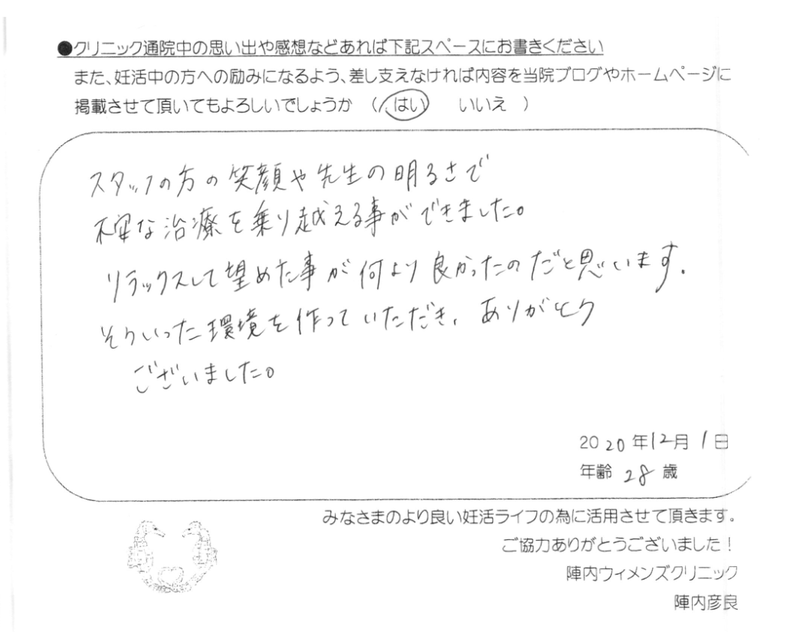 ●クリニック通院中の思い出や感想などあれば下記スペースにお書きください
また、妊活中の方への励みになるよう、差し支えなければ内容を当院ブログやホームページに
掲載させて頂いてもよろしいでしょうか （ はい いいえ ）
スタッフの方の笑顔や先生の明るさで
不安な治療を乗り越える事ができました。
リラックスして望めた事が何より良かったのだと思います。
そういった環境を作っていただき、ありがとう
ございました。
2020年12月1日
年齢 28歳
みなさまのより良い妊活ライフの為に活用させて頂きます。
ご協力ありがとうございました！
陣内ウィメンズクリニック
陣内彦良